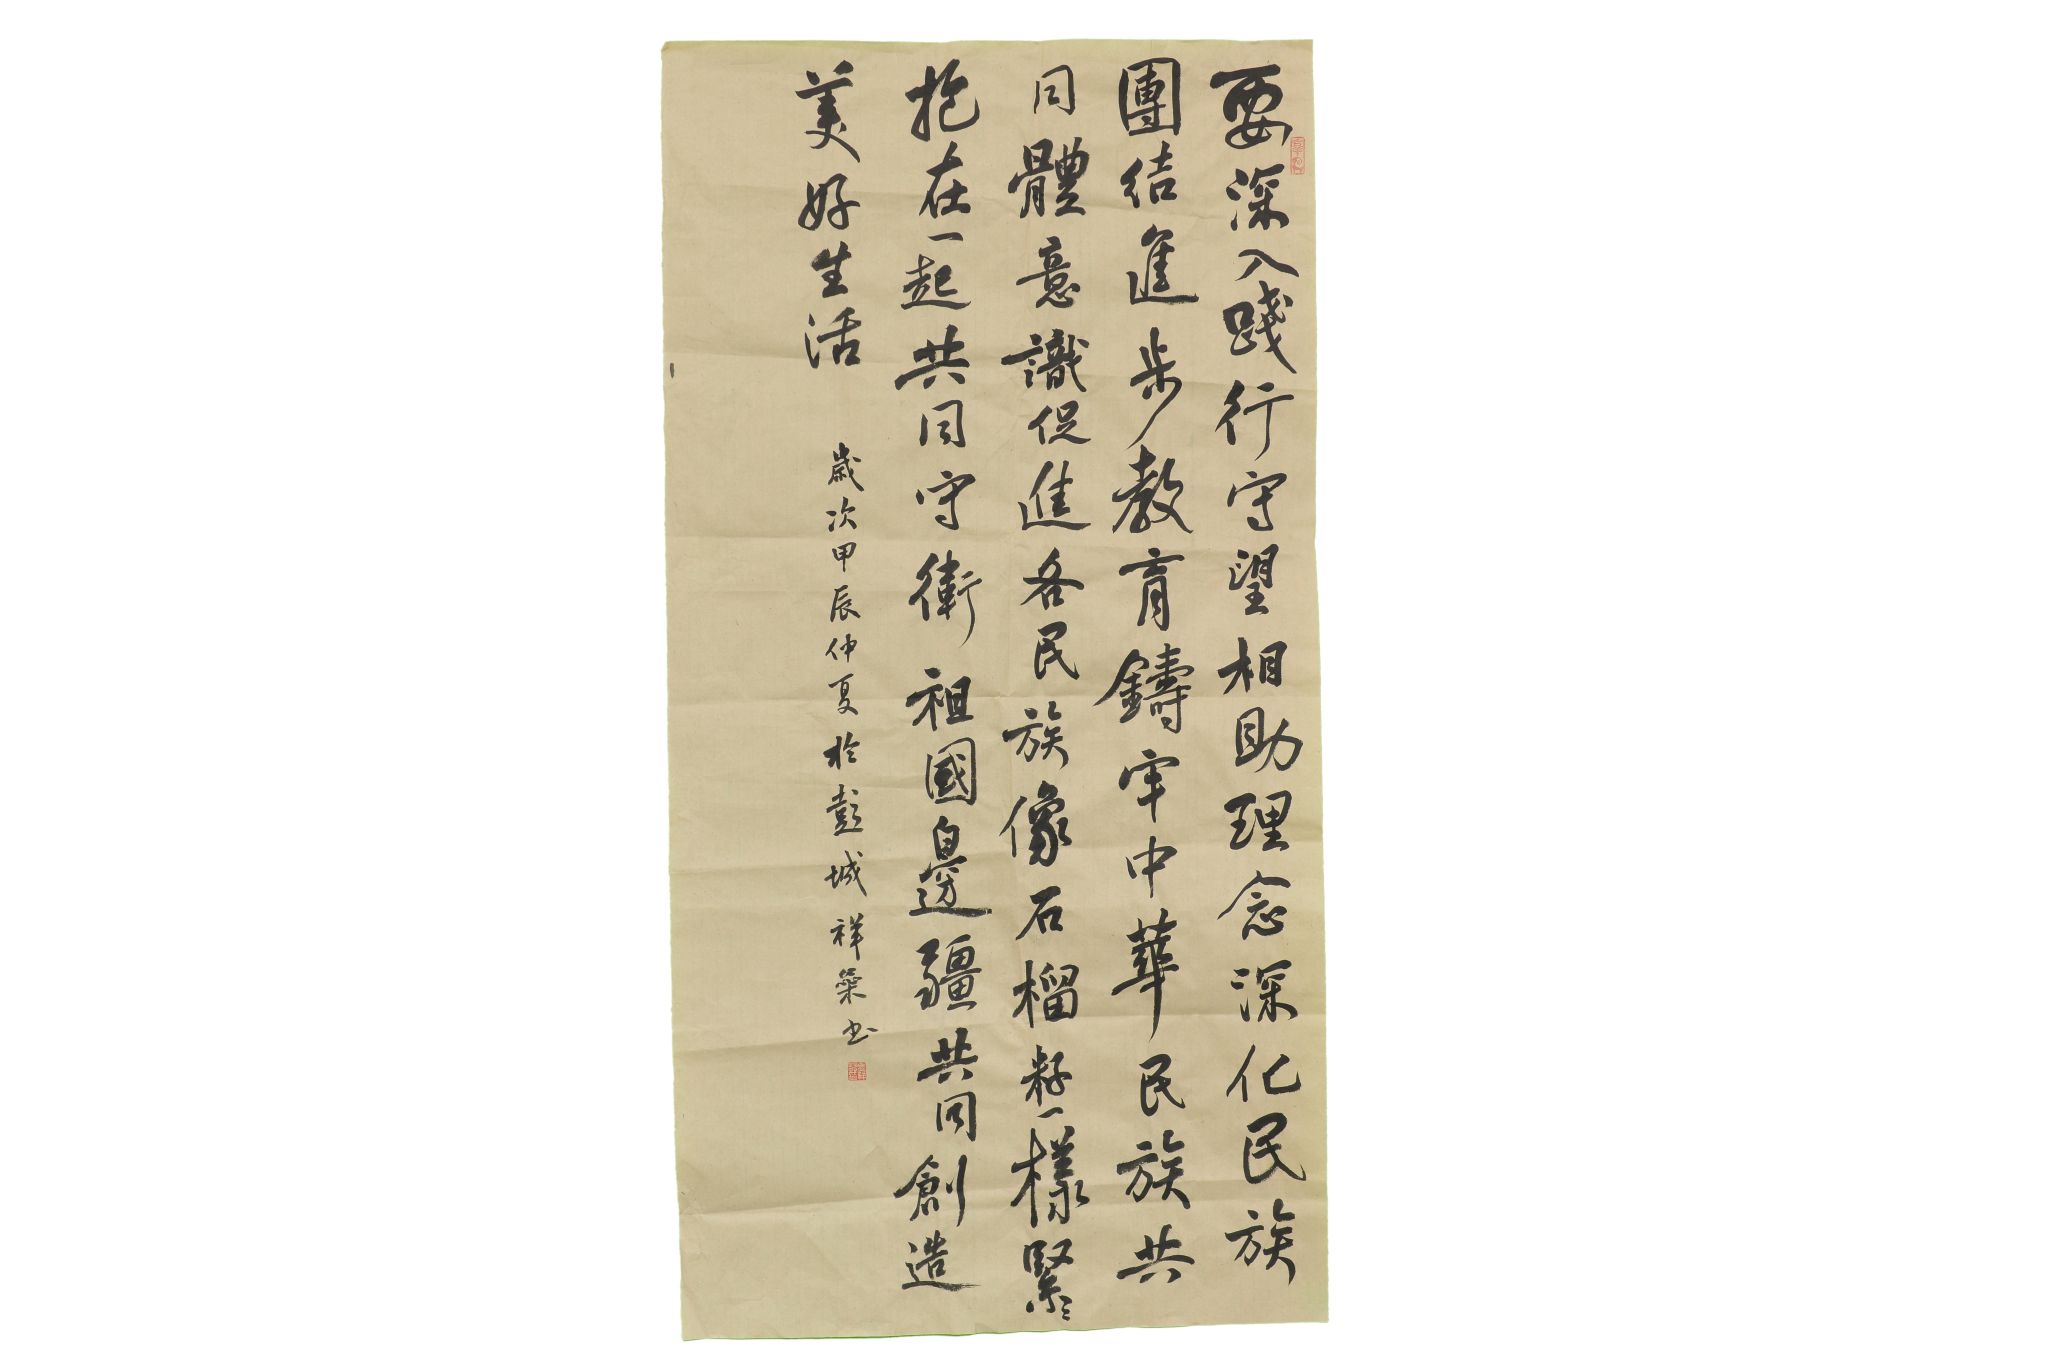 要深入踐行守望相助理念深化民族
團结進步教育鑄牢中華民族共
同體意識促進各民族像石榴籽一樣緊緊
抱在一起共同守衛祖國邊疆共同創造
美好生活
歲次甲辰仲夏於彭城祥榮书